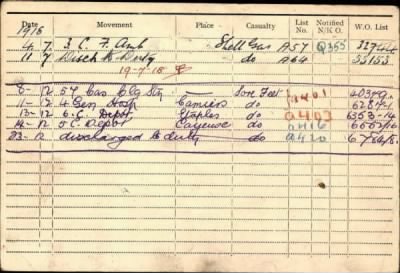 Date Movement Place Casualty List No. Notified N.K.O. W.O. List
1916
4 7. 3. C. F. Amb Shell Gas A57 Q355 32744
11 7 Disch to Duty do A64 33153
19-7-16
8- 12 54 Cas Clg Stn — Sore Feet A401 40379
11- 12 4 Gen Hosp Camiers do 6287-1
13- 12 6. C. Depot Etaples do A403 6353-14
12 5 C. Depot Cayeux do A416
23-12 discharged to duty do A420